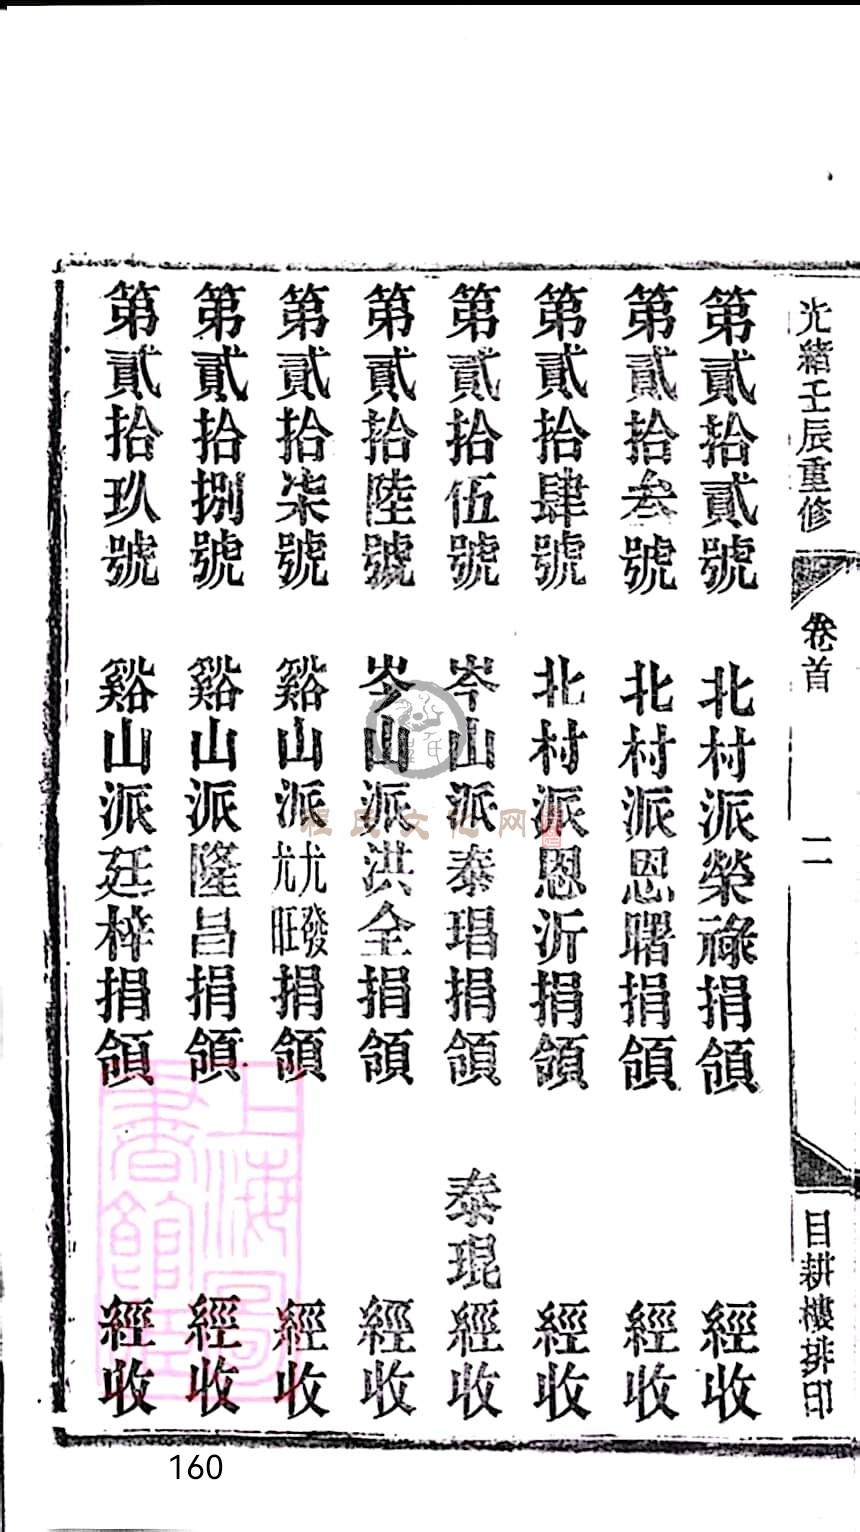 光緒壬辰重修
卷首
二
目耕樓排印
第貳拾貳號 北村派榮祿捐領 經收
第貳拾叁號 北村派恩曙捐領 經收
第貳拾肆號 北村派恩沂捐領 經收
第貳拾伍號 岑山派泰琩捐領 泰琨經收
第貳拾陸號 岑山派洪全捐領 經收
第貳拾柒號 谿山派尤發尤旺捐領 經收
第貳拾捌號 谿山派隆昌捐領 經收
第貳拾玖號 谿山派廷梓捐領 經收
程氏文化网
上海圖書館藏
160